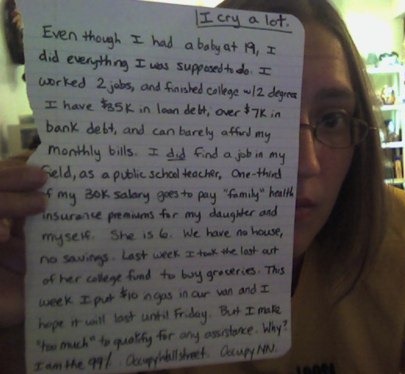 I cry a lot.
Even though I had a baby at 19, I
did everything I was supposed to do. I
worked 2 jobs, and finished college w/2 degrees
I have $35K in loan debt, over $7K in
bank debt, and can barely afford my
monthly bills. I did find a job in my
field, as a public school teacher, One-third
of my 30K salary goes to pay "family" health
insurance premiums for my daughter and
myself. She is 6. We have no house,
no savings. Last week I took the last out
of her college fund to buy groceries. This
week I put $10 in gas in our van and I
hope it will last until Friday. But I make
"too much" to qualify for any assistance. Why?
I am the 99%. OccupyWallstreet. Occupy NN.